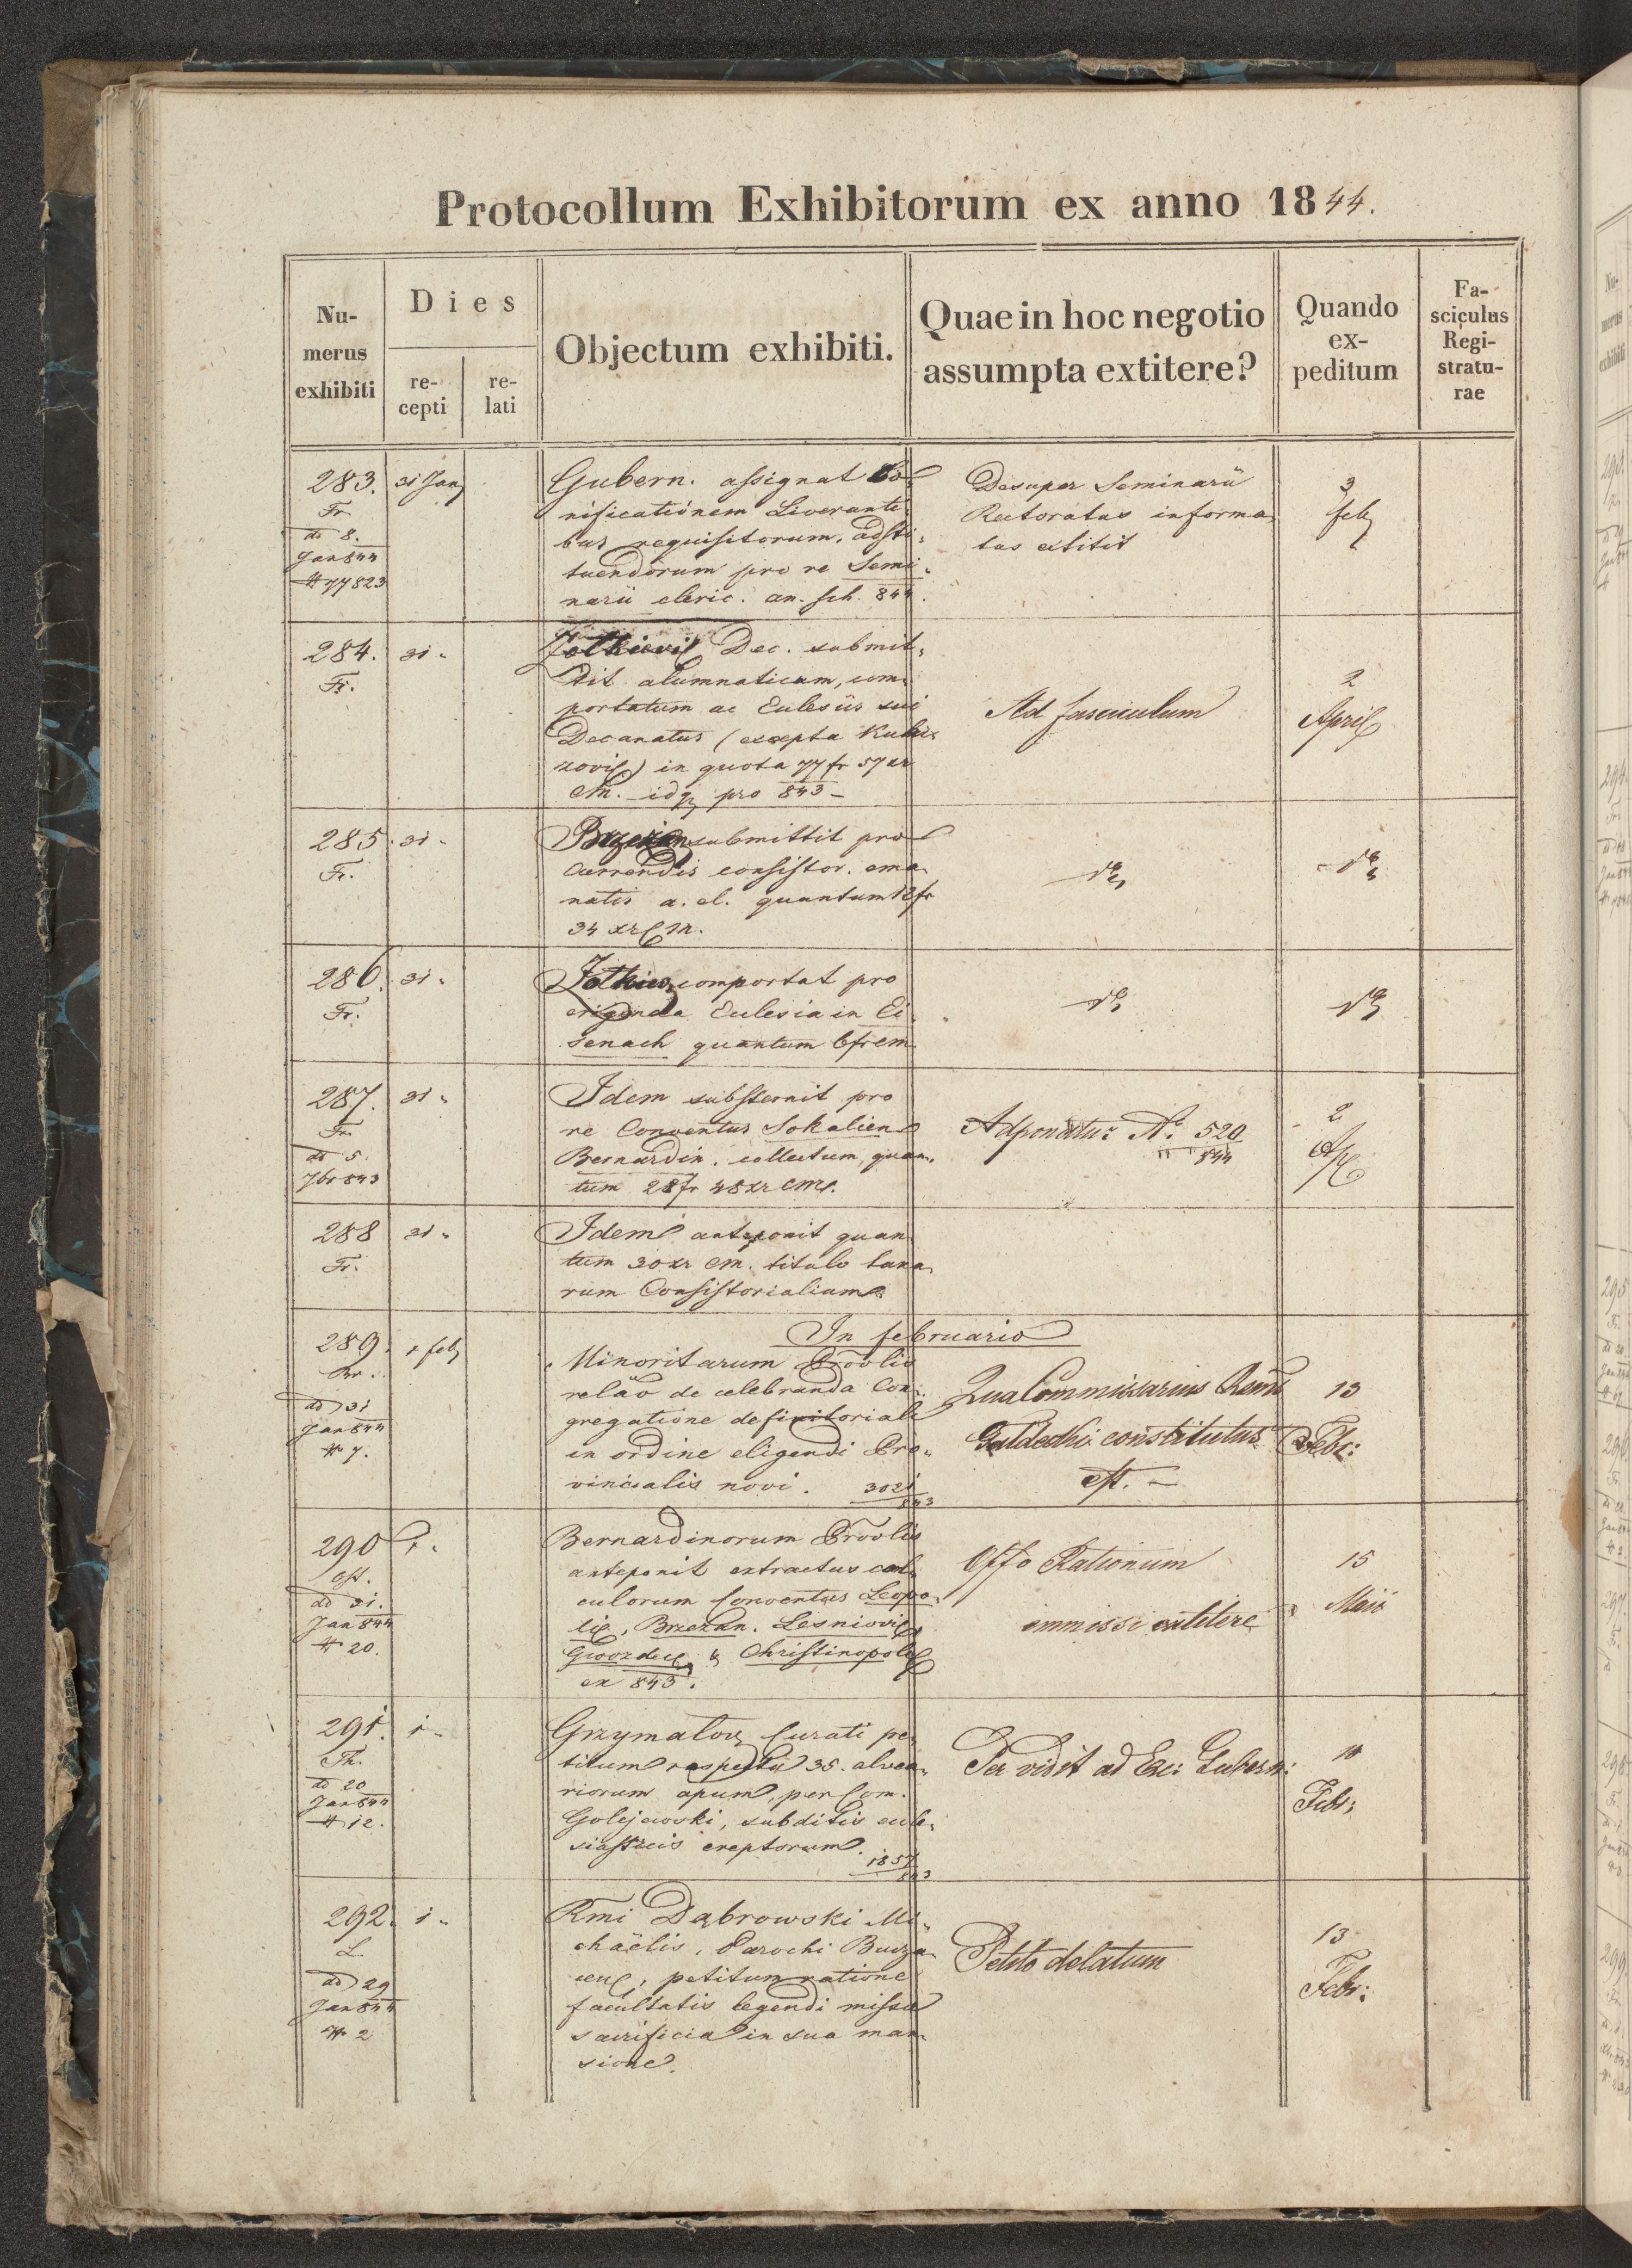 Protocollum Exhibitorum ex anno 1844.
Nu-
merus
exhibiti
Dies
re-
cepti
re-
lati
Objectum exhibiti.
Quae in hoc negotio
assumpta extitere?
Quando
ex-
peditum
Fa-
sciculus
Regi-
stratu-
rae
283.
Fr.
do 8.
Jan 844
# 77823
31 Jan
Gubern. assignat bo
nificationem Liveranti,
bus requisitorum, adsti,
tuendorum pro re Semi,
narii cleric. an. sch. 844.
Desuper Seminarii
Rectoratus informa,
tus extitit
3
feb
284.
Fr.
31 "
Dec. submit,
tit alumnaticum, com,
portatum ac Eclesiis sui
Decanatus (excepta
) in quota 77 fr 57 xr
CM. idq pro 843 -
Ad fasciculum
2
April
285.
Fr.
31 "
Brzezan submittit pro
Currendis consistor. ema,
natis a. el. quantum 12 fr
34 xr CM.
286.
Fr.
31 "
comportat pro
erigenda Eclesia in Ei,
senach quantum 6 fr CM
287.
Fr.
do 5.
7br 843
31 "
Idem substernit pro
re Conventus Sokalien
Bernardin. collectum, quan,
tum 28 fr 48 xr CM.
Adponatur No. 520
844
2
288
Fr.
31 "
Idem anteponit quan
tum 30 xr CM. titulo taxa,
rum Consistorialium.
In februario
289.
ad 31
Jan 844
# 7.
1 feb
Minoritarum Provlis
relao de celebranda Con,
gregatione definitoriali
in ordine eligendi Pro,
vincialis novi. 3021
843
Qua Commissarius
constitutus
est. -
13
Febr:
290
ad 31.
Jan 844
# 20.
1 "
Bernardinorum Provlis
anteponit extractus cal,
culorum Conventus Leopo,
, Brzezan. Lesniovic,
Gwozdec & Christinopol
ex 843.
Offo Rationum
immissi extitere
15
Maii
291.
Th.
ad 20
Jan 844
# 12.
1 "
Grzymalov Curati pe,
titum respectu 35. alvea,
riorum apum, per Com.
Golejewski, subditis ecle,
siasticis ereptorum.
1857
843
Per vidit ad Exc: Gubern:
Febr:
292.
L.
ad 29
Jan 844
# 2
1 "
Rmi Dąbrowski Mi,
chaëlis, Parochi Bucza,
cen, petitum ratione
facultatis legendi missae
sacrificia in sua man,
sione.
Petito delatum
13
Febr: